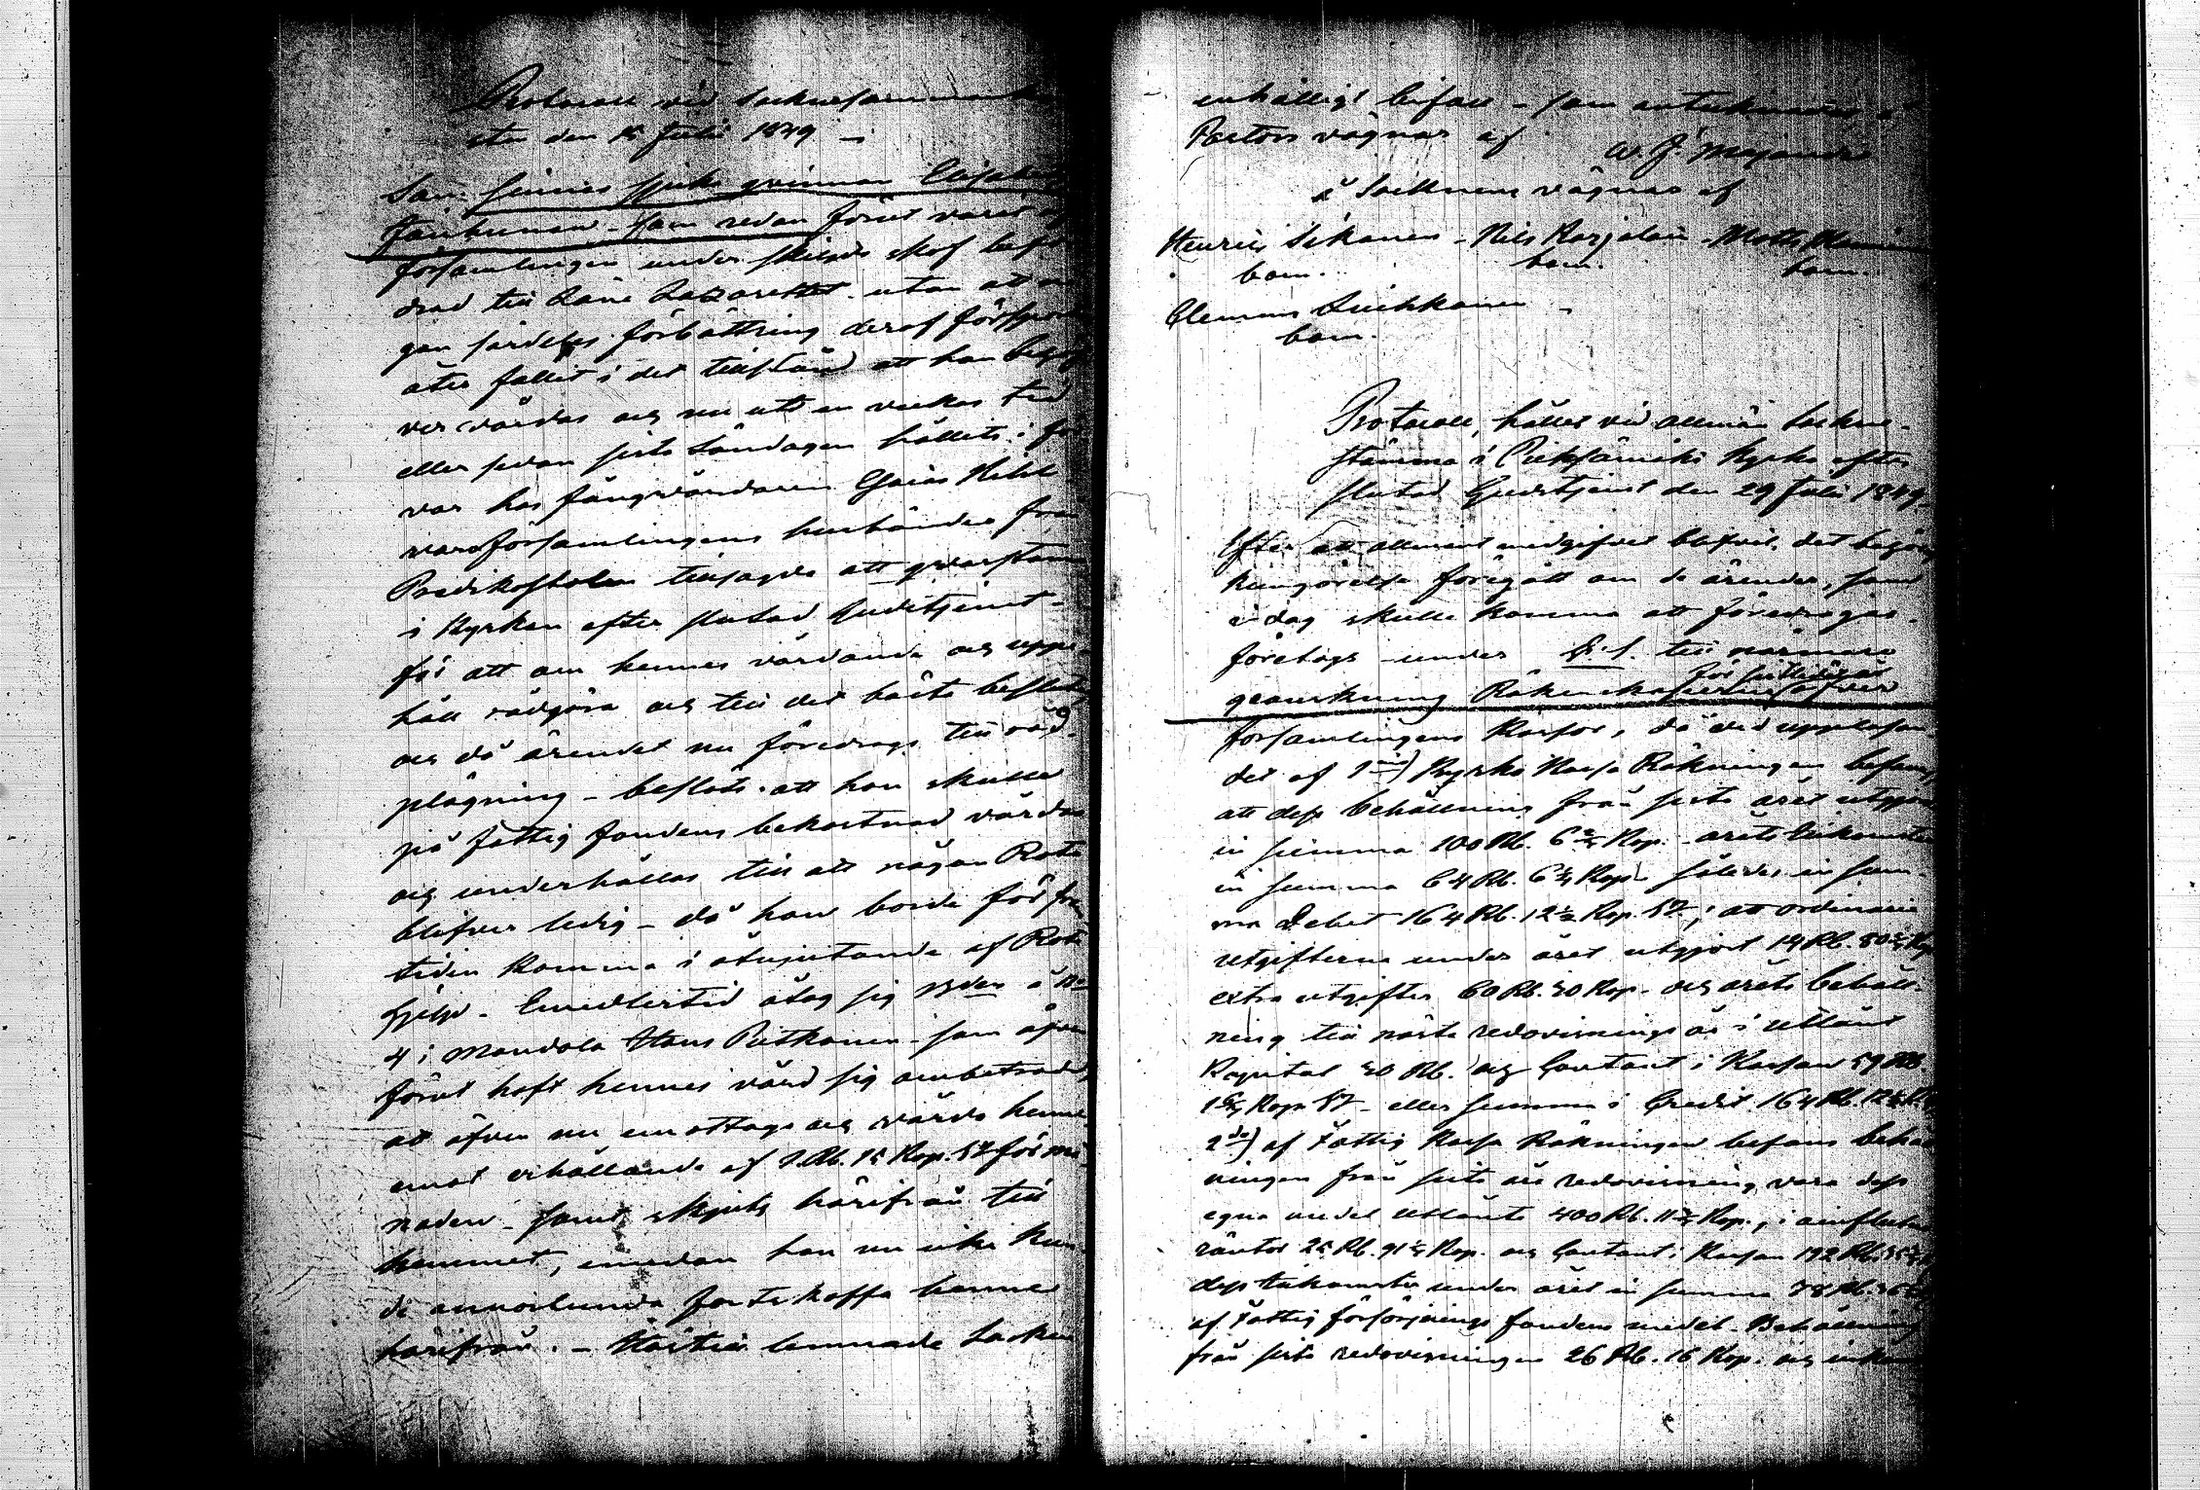 Protocoll vid Sockne sammankom
sten den 15 Julii 1849 –
San finnes sjuka qvinnan Elisabet
som redan förut varit af
församlingen under skilda skof bef
drad till Läne Lazarettet utan att nå
gon särdeles förbättring deraf försport
åter fallit i det tillstånd att hon behöf
ver vårdas och nu uti en veckas tid
eller sedan sista Söndagen hållits i för
var hos fångvårdaren
varo församlingens husbönder från
Predikostolen tillsagde att qvarstanna
i Kyrkan efter slutad Gudstjenst –
för att om hennes vårdande och uppe
håll rådgöra och till det bästa besluta
och då ärendet nu föredrogs till råd-
plägning – beslöts att hon skulle
på fattig fondens bekostnad vårdas
och underhållas till att någon Rote
blefve ledig – då hon borde för fram
tiden komma i åtnjutande af Rote
hjelp – Emedlertid åtog sig
4 i Mandola Hans Putkonen som äfven
förut haft hennes vård sig anbetrodd,
att äfven nu emottaga och vårda henne
emot erhållande af 1 Rb. 15 Kop. Sr för må-
naden – samt skjuts härifrån till
hemmet, emedan han nu icke kun
de annorlunda fortskaffa henne
härifrån. – Härtill lemnade Socken
enhälligt bifall – som antecknades å
Pastors vägnar af W. J. Majander
å Socknens vägnar af
Henric Sikanen – Nils Karjalain – Matts
bom. bom. bom.
Clemens Luukkonen –
bom.
Protocoll, hållet vid allmän Sockne-
stämma i Pieksämäki Kyrka efter
slutad Gudstjenst den 29 Julii 1849.
Efter att allment medgifvet blifvit, det behörig
kungörelse föregått om de ärender, som
i dag skulle komma att föredragas
företogs under till närmare
granskning Räkenskaperne öfver
församlingens Kassor, då vid uppläsan-
det af 1mo) Kyrko Kassa Räkningen befans,
att dess behållning från sista året utgjorde
in summa 100 Rb. 6 2/4 Kop. – årets inkomster
in summa 64 Rb. 6 Kop. således in sum-
ma Debet 164 Rb. 12 1/2 Kop. Sr; att ordinarie
utgifterne under året utgjort 14 Rb. 80
extra utgifter 60 Rb. 30 Kop. och årets behåll-
ning till nästa redovisnings år i utlånt
Kapital 30 Rb. och Contant i Kassan 59 Rb.
Kop. Sr – eller summa i Credit 164 Rb. 12 1/2
2do) af Fattig Kassa Räkningen befans behåll
ningen från sista års redovisning vara dess
egna medel utlånte 400 Rb. Kop., i influtne
räntor 25 Rb. 91 Kop. och Contant i Kassan 192 Rb.
dess inkomster under året in summa 78 Rb.
af Fattig försörjnings fondens medel – Behållning
från sista redovisningen 26 Rb. 16 Kop. och inkom